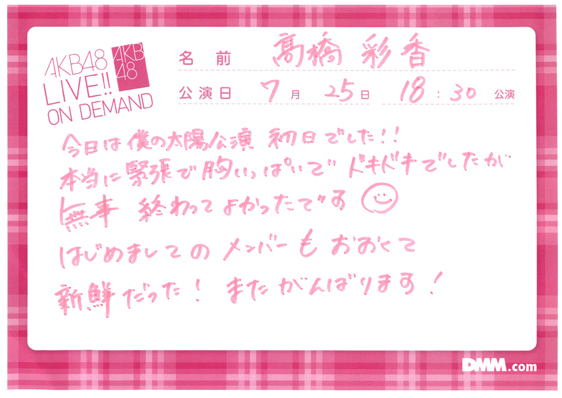 AKB48
LIVE!!
ON DEMAND
AKB
48
名前 髙橋 彩香
公演日 7月 25日 18:30 公演
今日は僕の太陽公演 初日でした!!
本当に緊張で胸いっぱいで ドキドキでしたが
無事 終わってよかったです
はじめましての メンバーもおおくて
新鮮だった! またがんばります!
DMM.com